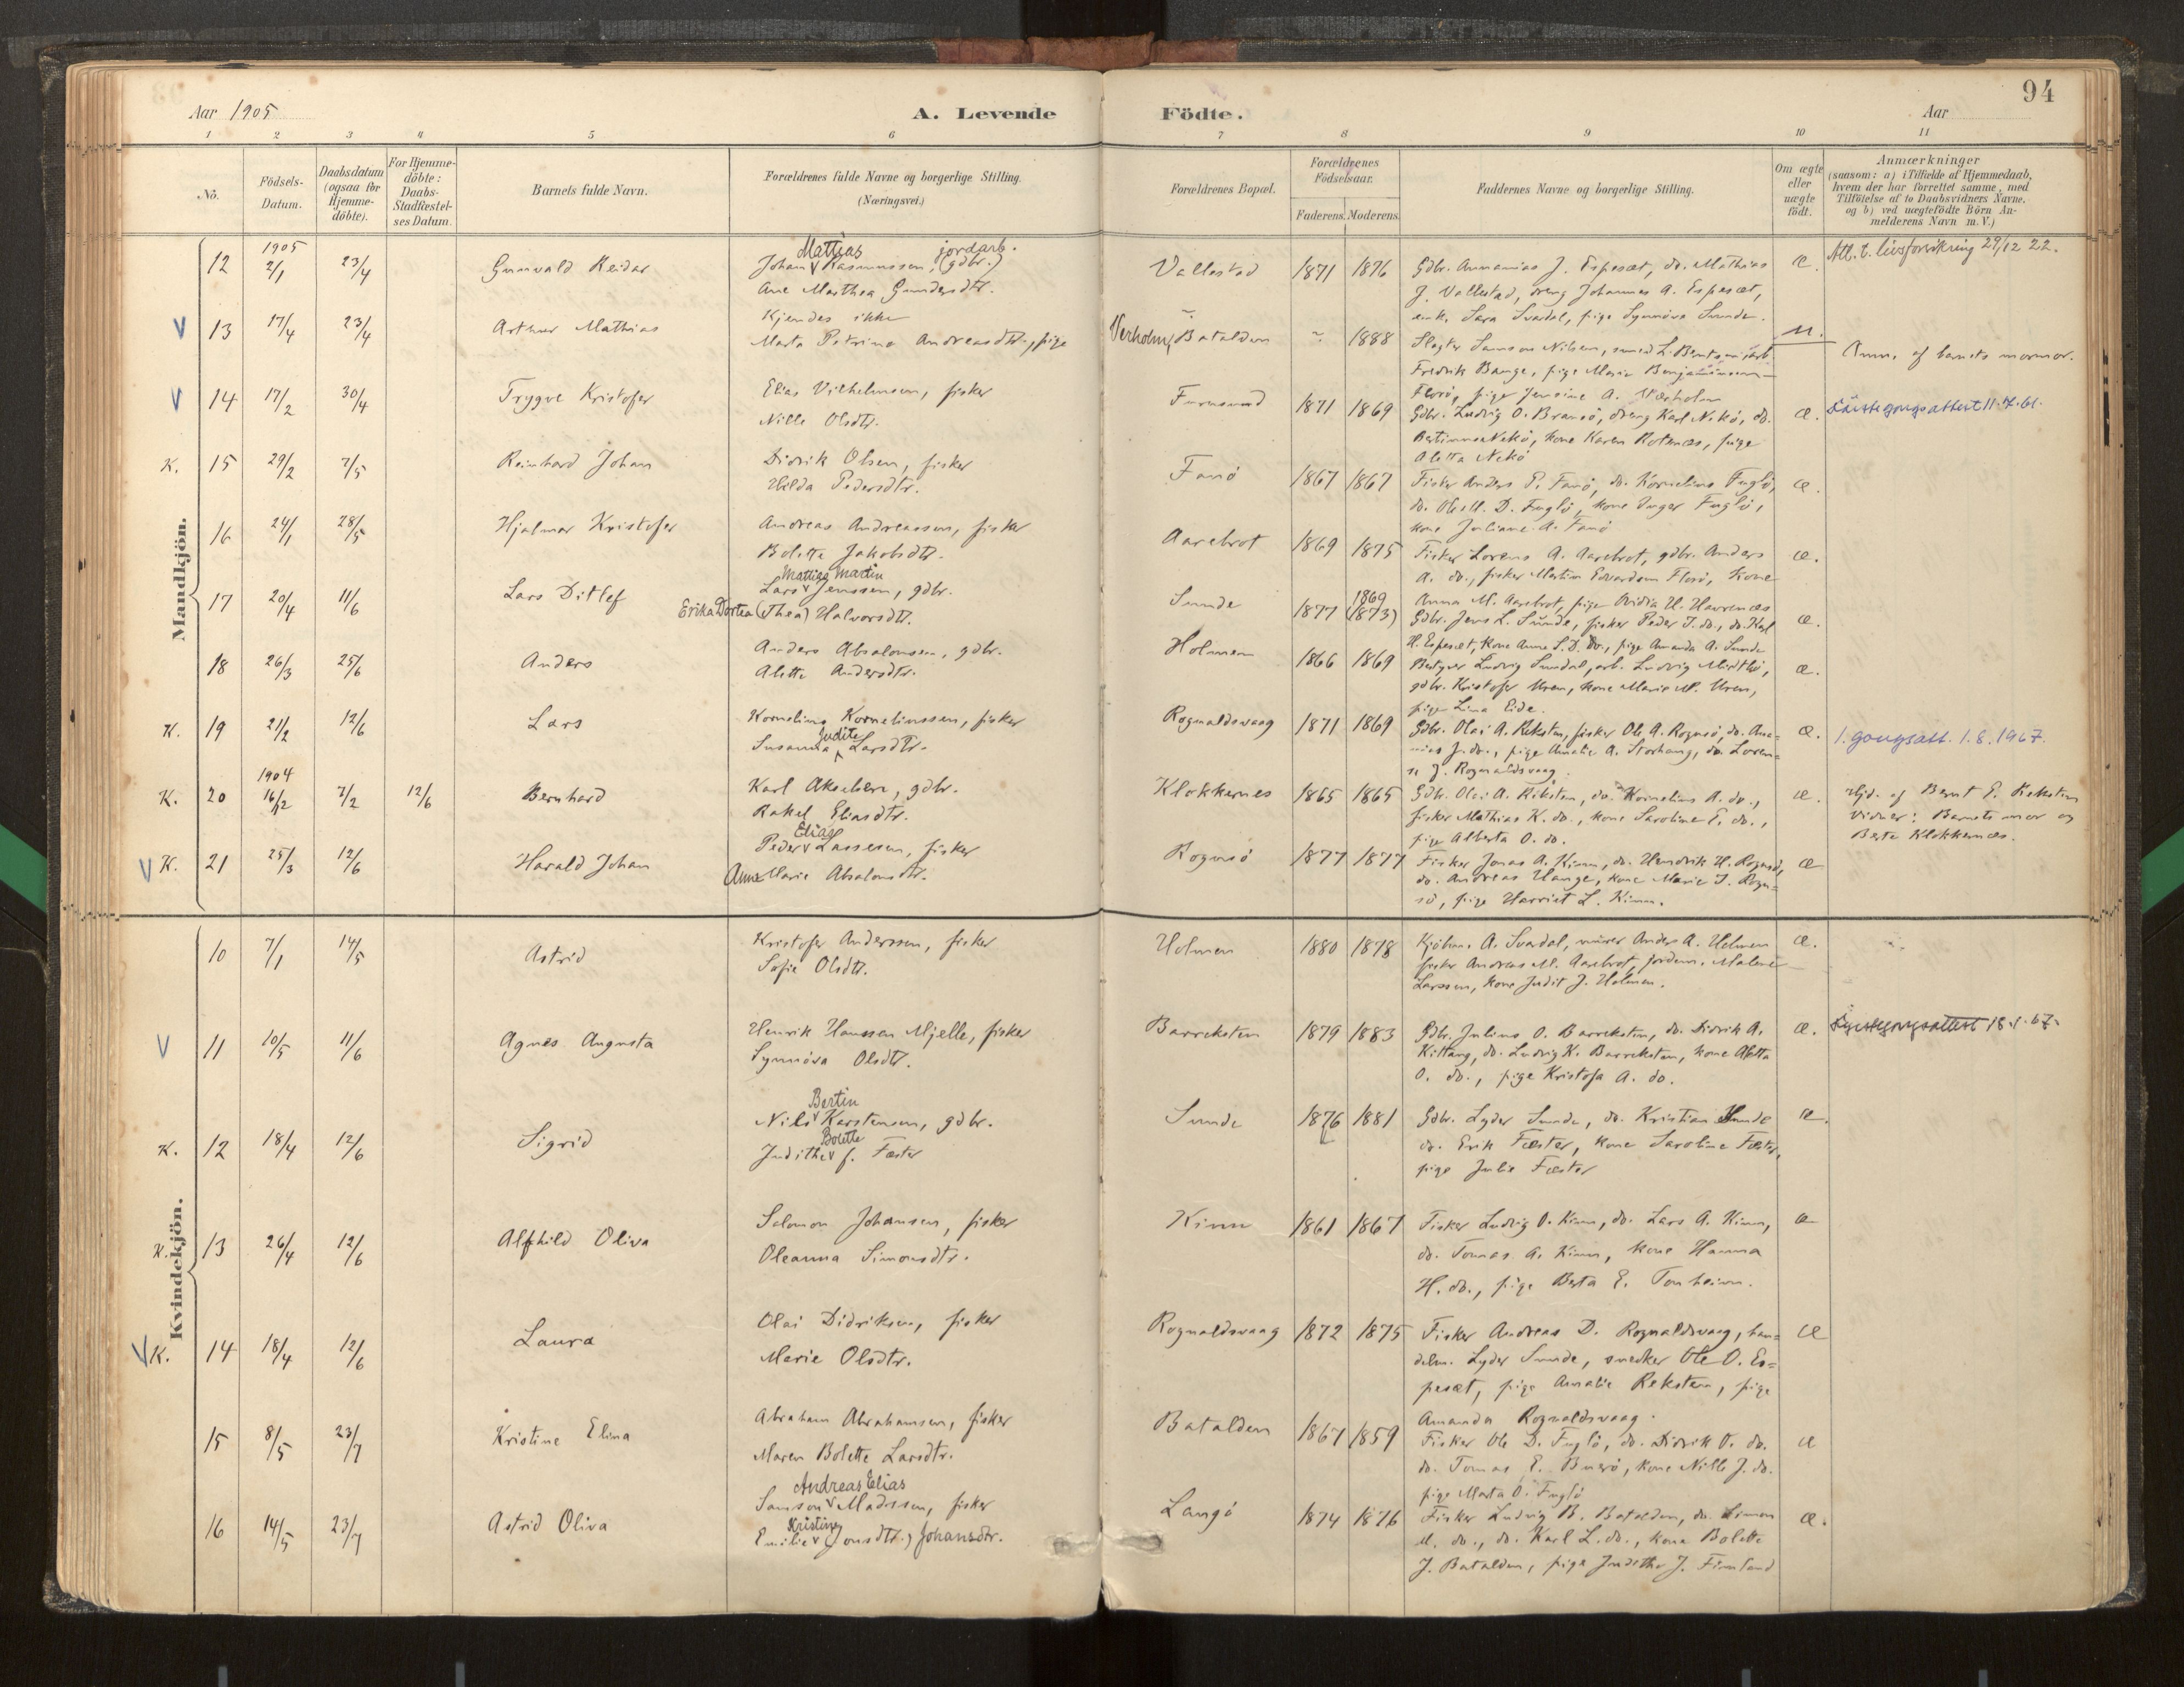 94
Aar 1905
A. Levende Födte.
Aar
1 2 3 4 5 6 7 8 9 10 11
No.
Födsels-Datum.
Daabsdatum (ogsaa for Hjemme-döbte).
For Hjemme-döbte: Daabs-Stadfæstel-ses Datum.
Barnets fulde Navn.
Forældrenes fulde Navne og borgerlige Stilling.
(Næringsvei.)
Forældrenes Bopæl.
Forældrenes Födselsaar.
Faderens. Moderens.
Faddernes Navne og borgerlige Stilling.
Om ægte eller uægte födt.
Anmærkninger
(saasom: a) i Tilfælde af Hjemmedaab,
hvem der har forrettet samme, med
Tilföielse af to Daabsvidners Navne,
og b) ved uægtefödte Börn An-
melderens Navn m. V.)
Mandkjön.
12 1905 2/1 23/4 Gunvald Reidar
Mattias jordarb.
Johan Rasmussen, (gdbr.)
Ane Marthea Gundersdtr.
Vallestad 1871 1876
Gdbr. Annanias J. Espeset, do. Mathias
J. Vallestad, dreng Johannes A. Espeset,
enk. Sara Svardal, pige Synnöve Sunde.
æ.
Att. t. livsforsikring 29/12 22.
V 13 17/4 23/4 Arthur Mathias
Kjendes ikke
Marta Petrine Andreasdtr., pige
Verholm, Batalden ~ 1888
Slagter Samson Nilsen, smed L. Bentsen, arb.
Fredrik Bauge, pige Marie Benjaminsen
Florö, pige Jensine A. Væsholm
u.
Anm. af barnets mormor.
V 14 17/2 30/4 Trygve Kristofer
Elias Vilhelmsen, fisker
Nille Olsdtr.
Furusund 1871 1869
Gdbr. Ludvig O. Bransö, dreng Karl Nekö, do.
Bertinus Nekö, kone Karen Rotenes, pige
Aletta Nekö
æ.
Förstegongsattest 11.7.61.
K. 15 29/2 7/5 Reinhard Johan
Didrik Olsen, fisker
Hilda Pedersdtr.
Fanö 1867 1867
Fisker Anders P. Fanö, do. Kornelius Fuglö,
do. Ole M. D. Fuglö, kone Inger Fuglö,
kone Juliane A. Fanö
æ.
16 24/1 28/5 Hjalmar Kristofer
Andreas Andreassen, fisker
Bolette Jakobsdtr.
Aarebrot 1869 1875
Fisker Lorens A. Aarebrot, gdbr. Anders
A. do., fisker Martin Edvardsen Florö, kone
Anna M. Aarebrot, pige Ovidia H. Havrenes
æ.
17 20/4 11/6 Lars Ditlef
Mattias Martin
Lars Jenssen, gdbr.
Erika Dortea (Thea) Halvorsdtr.
Sunde 1877 1869 (1873)
Gdbr. Jens L. Sunde, fisker Peder J. do., do. Karl
H. Espeset, kone Anne S. D. do., pige Amanda A. Sunde
æ.
18 26/3 25/6 Anders
Anders Absalonsen, gdbr.
Alette Andersdtr.
Holmen 1866 1869
Bestyrer Ludvig Sundal, arb. Ludvig Midtbö,
gdbr. Kristofer Uren, kone Marie M. Uren,
pige Lina Eide.
æ.
K. 19 21/2 12/6 Lars
Kornelius Korneliussen, fisker
Judite
Susanna Larsdtr.
Rognaldsvaag 1871 1869
Gdbr. Olai A. Reksten, fisker Ole A. Rognsö, do. Ana=
nias J. do., pige Amalie A. Storhaug, do. Loren=
se J. Rognaldsvaag.
æ.
1. gongsatt. 1.8.1967.
K. 20 1904 16/12 7/2 12/6 Bernhard
Karl Akselsen, gdbr.
Rakel Eliasdtr.
Klokkernes 1865 1865
Gdbr. Olai A. Reksten, do. Kornelius A. do.,
fisker Mathias K. do., kone Saroline E. do.,
pige Alberta O. do.
æ.
Hjd. af Bernt P. Reksten
Vidner: Barnets mor og
Berte Klokkernes.
V K. 21 25/3 12/6 Harald Johan
Elias
Peder Lassesen, fisker
Anne Marie Absalonsdtr.
Rognsö 1877 1877
Fisker Jonas A. Kinn, do. Hendrik H. Rognsö,
do. Andreas Hauge, kone Marie J. Rogn=
sö, pige Harriet L. Kinn.
æ
Kvindekjön.
10 7/1 14/5 Astrid
Kristofer Anderssen, fisker
Sofie Olsdtr.
Holmen 1880 1878
Kjöbm. A. Svardal, murer Anders A. Holmen
fisker Andreas M. Aarebrot, jordem. Malene
Larssen, kone Judit J. Holmen.
æ.
V 11 10/5 11/6 Agnes Augusta
Henrik Hanssen Mjelle, fisker
Synnöva Olsdtr.
Barreksten 1879 1883
Gdbr. Julius O. Barreksten, do. Didrik A.
Kittang, do. Ludvig K. Barreksten, kone Aletta
O. do., pige Kristofa A. do.
æ.
Förstegongsattest 18.1.67.
K. 12 18/4 12/6 Sigrid
Bertin
Nils Karstensen, gdbr.
Bolette
Judithe f. Fæster
Sunde 1876 1881
Gdbr. Lyder Sunde, do. Kristian Sunde
do. Erik Fæster, kone Saroline Fæster,
pige Julie Fæster
æ.
K. 13 26/4 12/6 Alfhild Oliva
Salomon Johansen, fisker
Oleanna Simonsdtr.
Kinn 1861 1867
Fisker Ludvig O. Kinn, do. Lars A. Kinn,
do. Tomas A. Kinn, kone Hanna
H. do., pige Berta E. Tonheim.
æ
V K. 14 18/4 12/6 Laura
Olai Didriksen, fisker
Marie Olsdtr.
Rognaldsvaag 1872 1875
Fisker Andreas D. Rognaldsvaag, han=
delm. Lyder Sunde, snedker Ole O. Es=
peset, pige Amalie Reksten, pige
Amanda Rognaldsvaag.
æ
15 8/5 23/7 Kristine Elina
Abraham Abrahamsen, fisker
Maren Bolette Larsdtr.
Batalden 1867 1859
Fisker Ole D. Fuglö, do. Didrik O. do.
do. Tomas E. Buerö, kone Nille J. do.
pige Marta O. Fuglö
æ
16 14/5 23/7 Astrid Oliva
Andreas Elias
Samson Madssen, fisker
Kristine
Emilie (Jonsdtr.) Johansdtr.
Langö 1874 1876
Fisker Ludvig B. Batalden, do. Simon
M. do., do. Karl L. do., kone Bolette
J. Batalden, pige Judithe J. Fimland
æ.